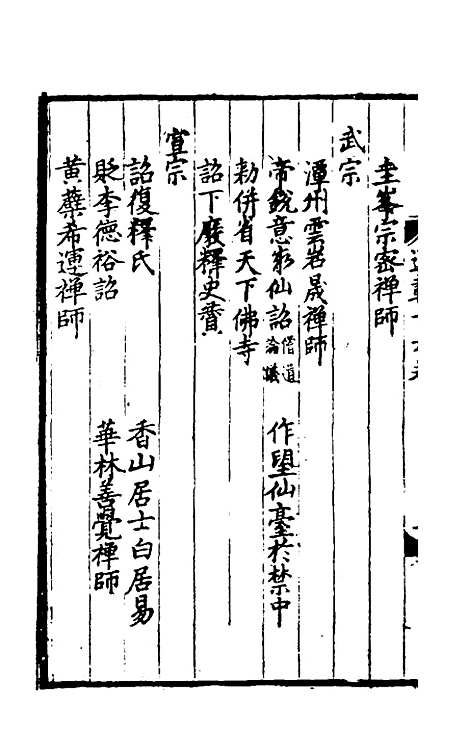 圭峯宗密禪師
武宗
潭州雲岩晟禪師
帝銳意求仙詔僧道論議 作望仙臺於禁中
勑併省天下佛寺
詔下廢釋史贊
宣宗
詔復釋氏 香山居士白居易
貶李德裕詔 華林善覺禪師
黃蘗希運禪師